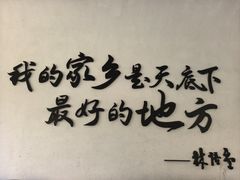 我的家乡是天底下
最好的地方
——林语堂